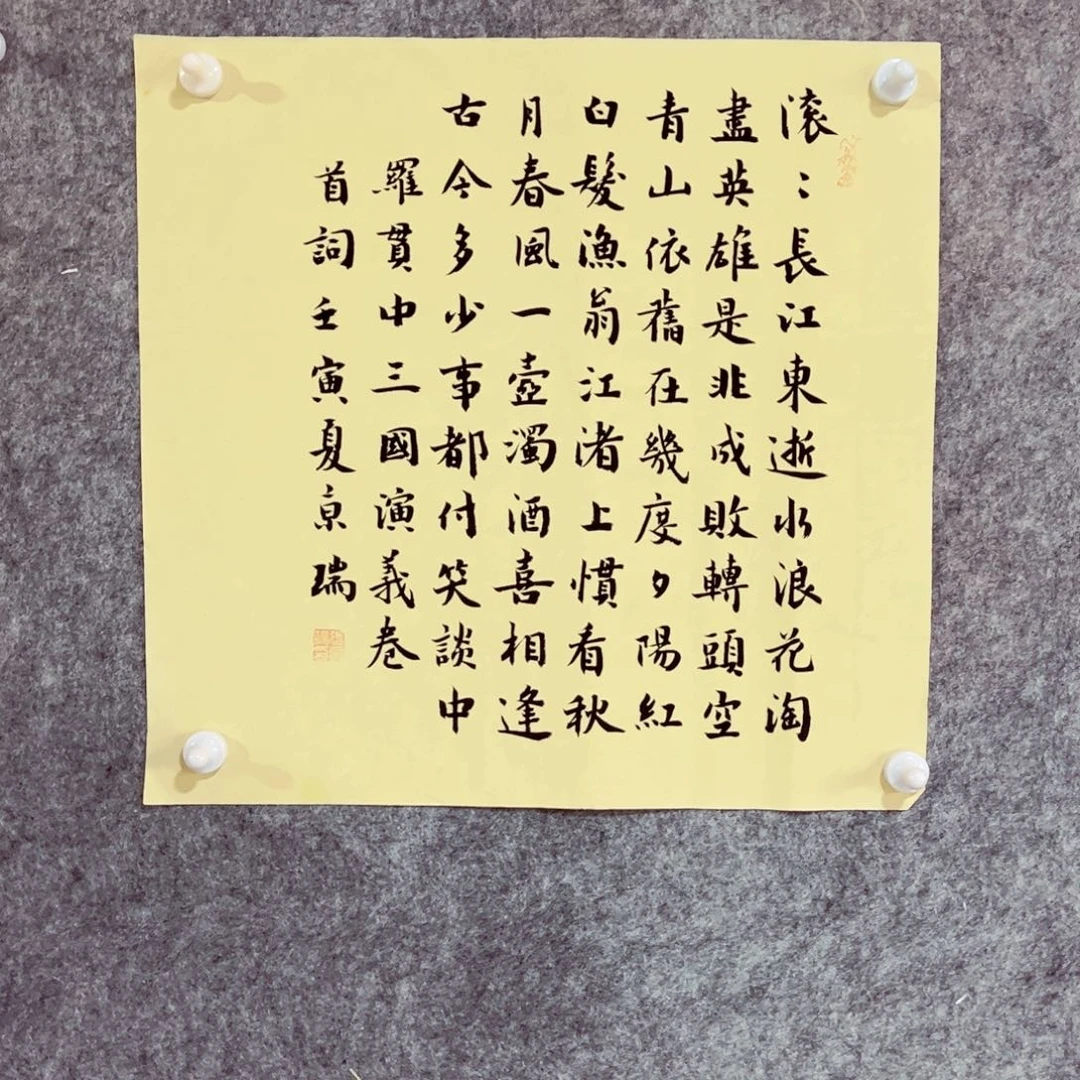 滚〻長江東逝水浪花淘
盡英雄是非成敗轉頭空
青山依舊在幾度夕陽紅
白髮漁翁江渚上慣看秋
月春風一壺濁酒喜相逢
古今多少事都付笑談中
羅貫中三國演義卷
首詞壬寅夏京瑞